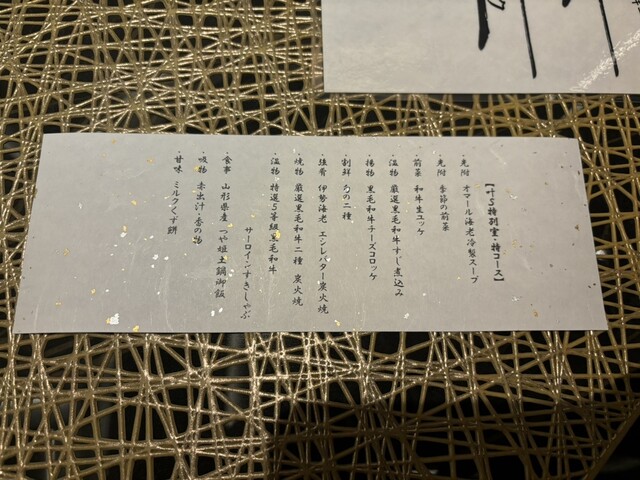 【叶S特別室・特コース】
・先附 オマール海老冷製スープ
・先附 季節の前菜
・前菜 和牛生ユッケ
・温物 厳選黒毛和牛すじ煮込み
・揚物 黒毛和牛チーズコロッケ
・割鮮 旬の二種
・強肴 伊勢海老 エシレバター炭火焼
・焼物 厳選黒毛和牛二種 炭火焼
・温物 特選5等級黒毛和牛
サーロイン・すきしゃぶ
・食事 山形県産 つや姫土鍋御飯
・吸物 赤出汁・香の物
・甘味 ミルクくず餅